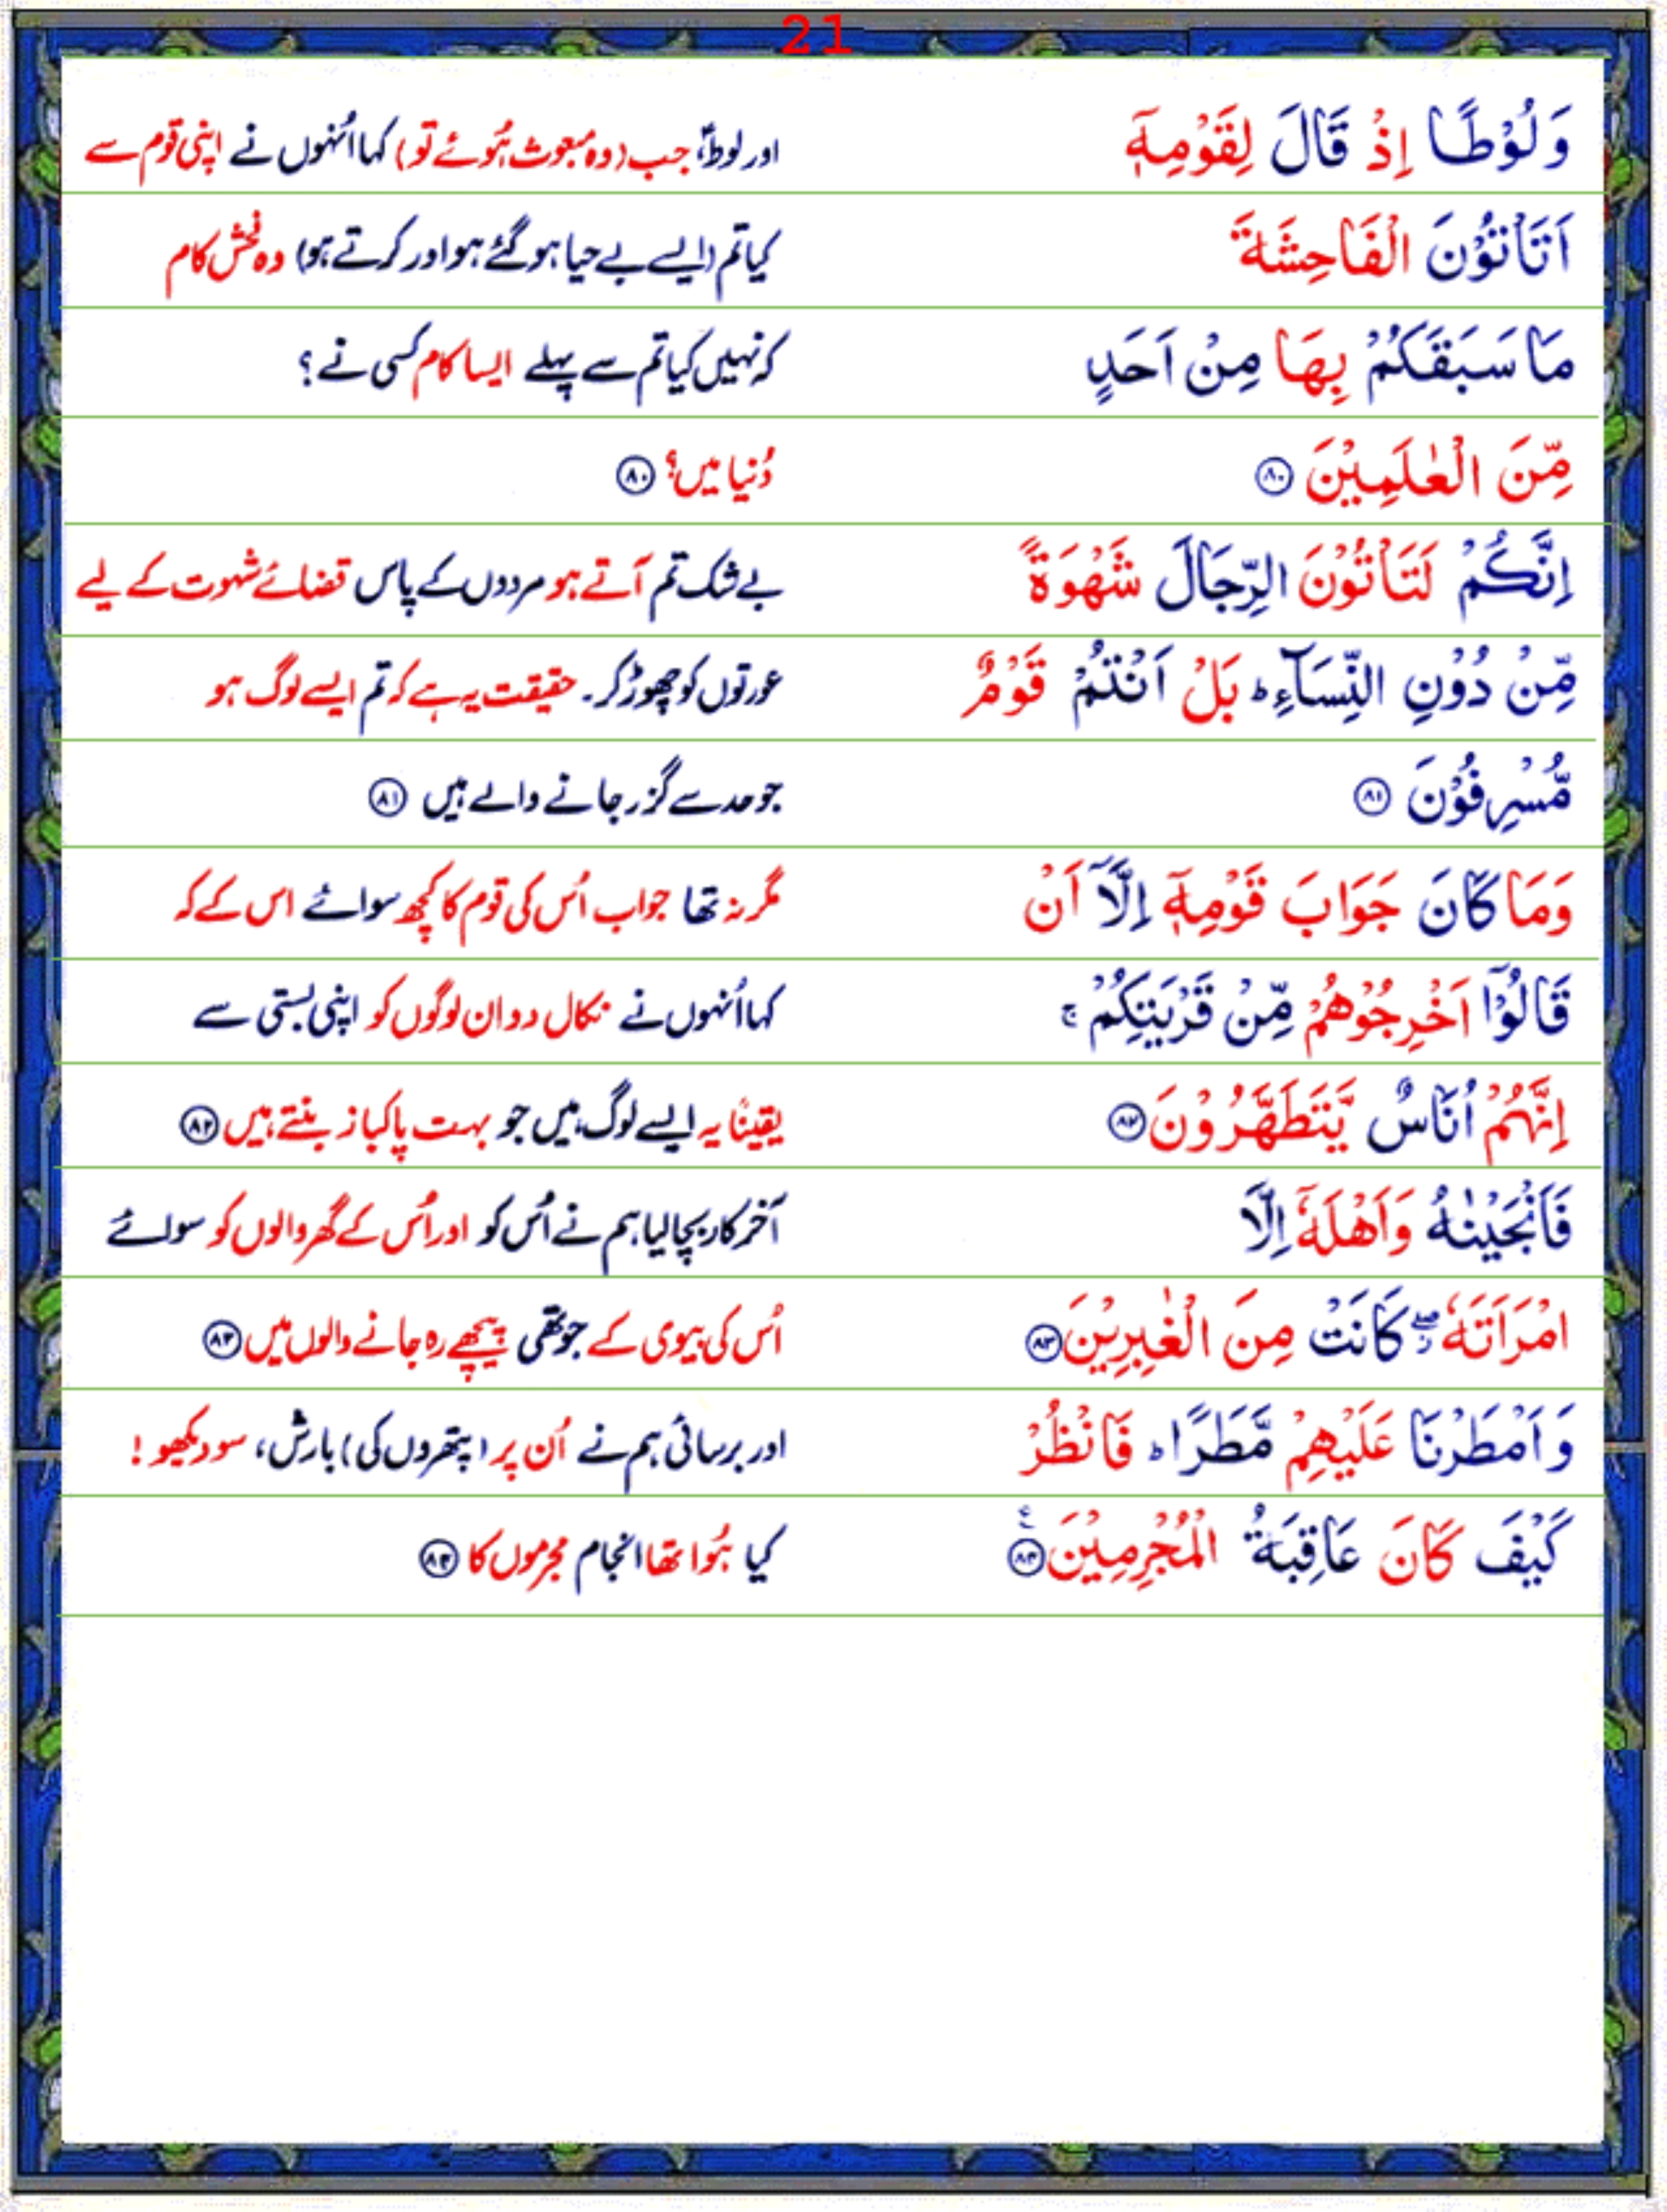 21
وَلُوْطًا اِذْ قَالَ لِقَوْمِهٖٓ اور لوطؑ، جب (وہ مبعوث ہُوئے تو) کہا اُنہوں نے اپنی قوم سے
اَتَاْتُوْنَ الْفَاحِشَةَ کیا تم (ایسے بے حیا ہو گئے ہو اور کرتے ہو) وہ فحش کام
مَا سَبَقَكُمْ بِهَا مِنْ اَحَدٍ کہ نہیں کیا تم سے پہلے ایسا کام کسی نے؟
مِّنَ الْعٰلَمِيْنَ ۸۰ دُنیا میں؟ ۸۰
اِنَّكُمْ لَتَاْتُوْنَ الرِّجَالَ شَهْوَةً بے شک تم آتے ہو مردوں کے پاس قضائے شہوت کے لیے
مِّنْ دُوْنِ النِّسَآءِ ؕ بَلْ اَنْتُمْ قَوْمٌ عورتوں کو چھوڑ کر۔ حقیقت یہ ہے کہ تم ایسے لوگ ہو
مُّسْرِفُوْنَ ۸۱ جو حد سے گزر جانے والے ہیں ۸۱
وَمَا كَانَ جَوَابَ قَوْمِهٖٓ اِلَّآ اَنْ مگر نہ تھا جواب اُس کی قوم کا کچھ سوائے اس کے کہ
قَالُوْٓا اَخْرِجُوْهُمْ مِّنْ قَرْيَتِكُمْ ۚ کہا اُنہوں نے نکال دو ان لوگوں کو اپنی بستی سے
اِنَّهُمْ اُنَاسٌ يَّتَطَهَّرُوْنَ ۸۲ یقینًا یہ ایسے لوگ ہیں جو بہت پاکباز بنتے ہیں ۸۲
فَاَنْجَيْنٰهُ وَاَهْلَهٗٓ اِلَّا آخر کار بچا لیا ہم نے اُس کو اور اُس کے گھر والوں کو سوائے
امْرَاَتَهٗ ۖ ز كَانَتْ مِنَ الْغٰبِرِيْنَ ۸۳ اُس کی بیوی کے جو تھی پیچھے رہ جانے والوں میں ۸۳
وَاَمْطَرْنَا عَلَيْهِمْ مَّطَرًا ؕ فَانْظُرْ اور برسائی ہم نے اُن پر (پتھروں کی) بارش، سو دیکھو!
كَيْفَ كَانَ عَاقِبَةُ الْمُجْرِمِيْنَ ۸۴ ع کیا ہُوا تھا انجام مجرموں کا ۸۴